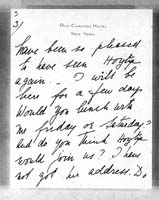 3
3/
RITZ-CARLTON HOTEL
NEW YORK
have been so pleased
to have seen Hoytie
again. I will be
here for a few days.
Would you lunch with
me friday or Saturday?
And do you think Hoytie
would join us? I have
not got his address. D.